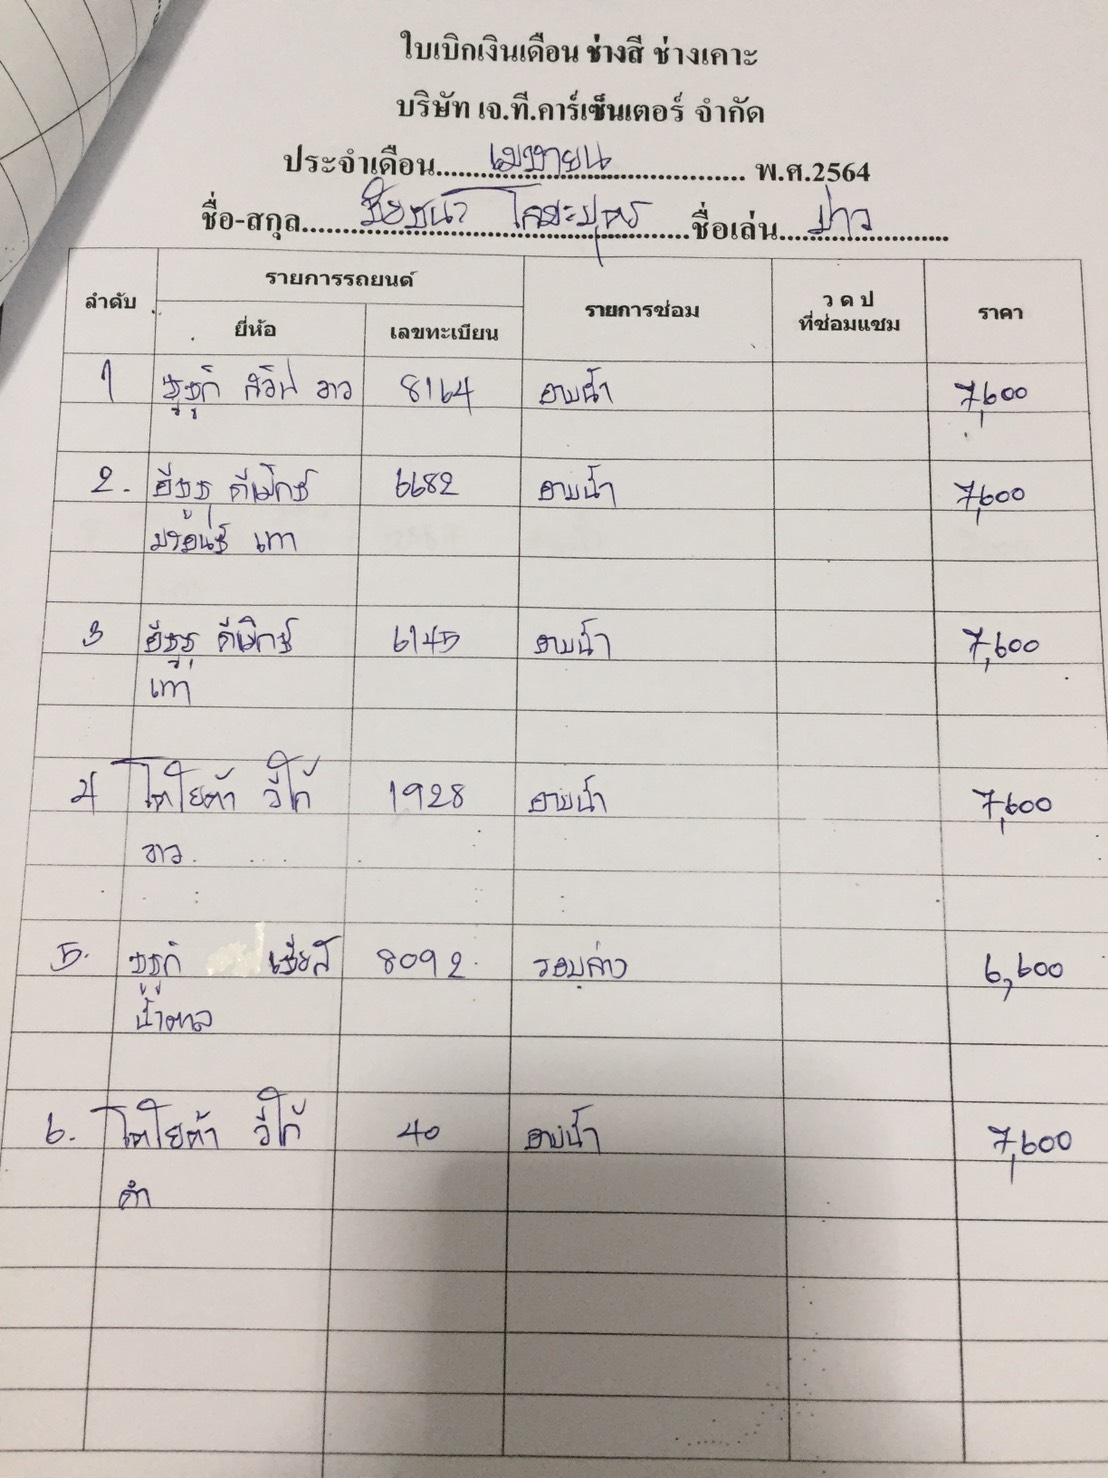 ใบเบิกเงินเดือน ช่างสี ช่างเคาะ
บริษัท เจ.ที.คาร์เซ็นเตอร์ จำกัด
ประจำเดือน.....เมษายน..... พ.ศ.2564
ชื่อ-สกุล..........ชื่อเล่น.....ปาว.....
ลำดับ รายการรถยนต์ รายการซ่อม ว ด ป ที่ซ่อมแซม ราคา
ยี่ห้อ เลขทะเบียน
1 ซูซูกิ สวิฟ ขาว 8164 อาบน้ำ 7,600
2. อีซูซุ ดีแม็กซ์ 6682 อาบน้ำ 7,600
บรอนซ์ เทา
3 อีซูซุ ดีแม็กซ์ 6145 อาบน้ำ 7,600
เทา
4 โตโยต้า วีโก้ 1928 อาบน้ำ 7,600
ขาว
5. ซูซูกิ เซียส 8092 รอบล่าง 6,600
น้ำตาล
6. โตโยต้า วีโก้ 40 อาบน้ำ 7,600
ดำ